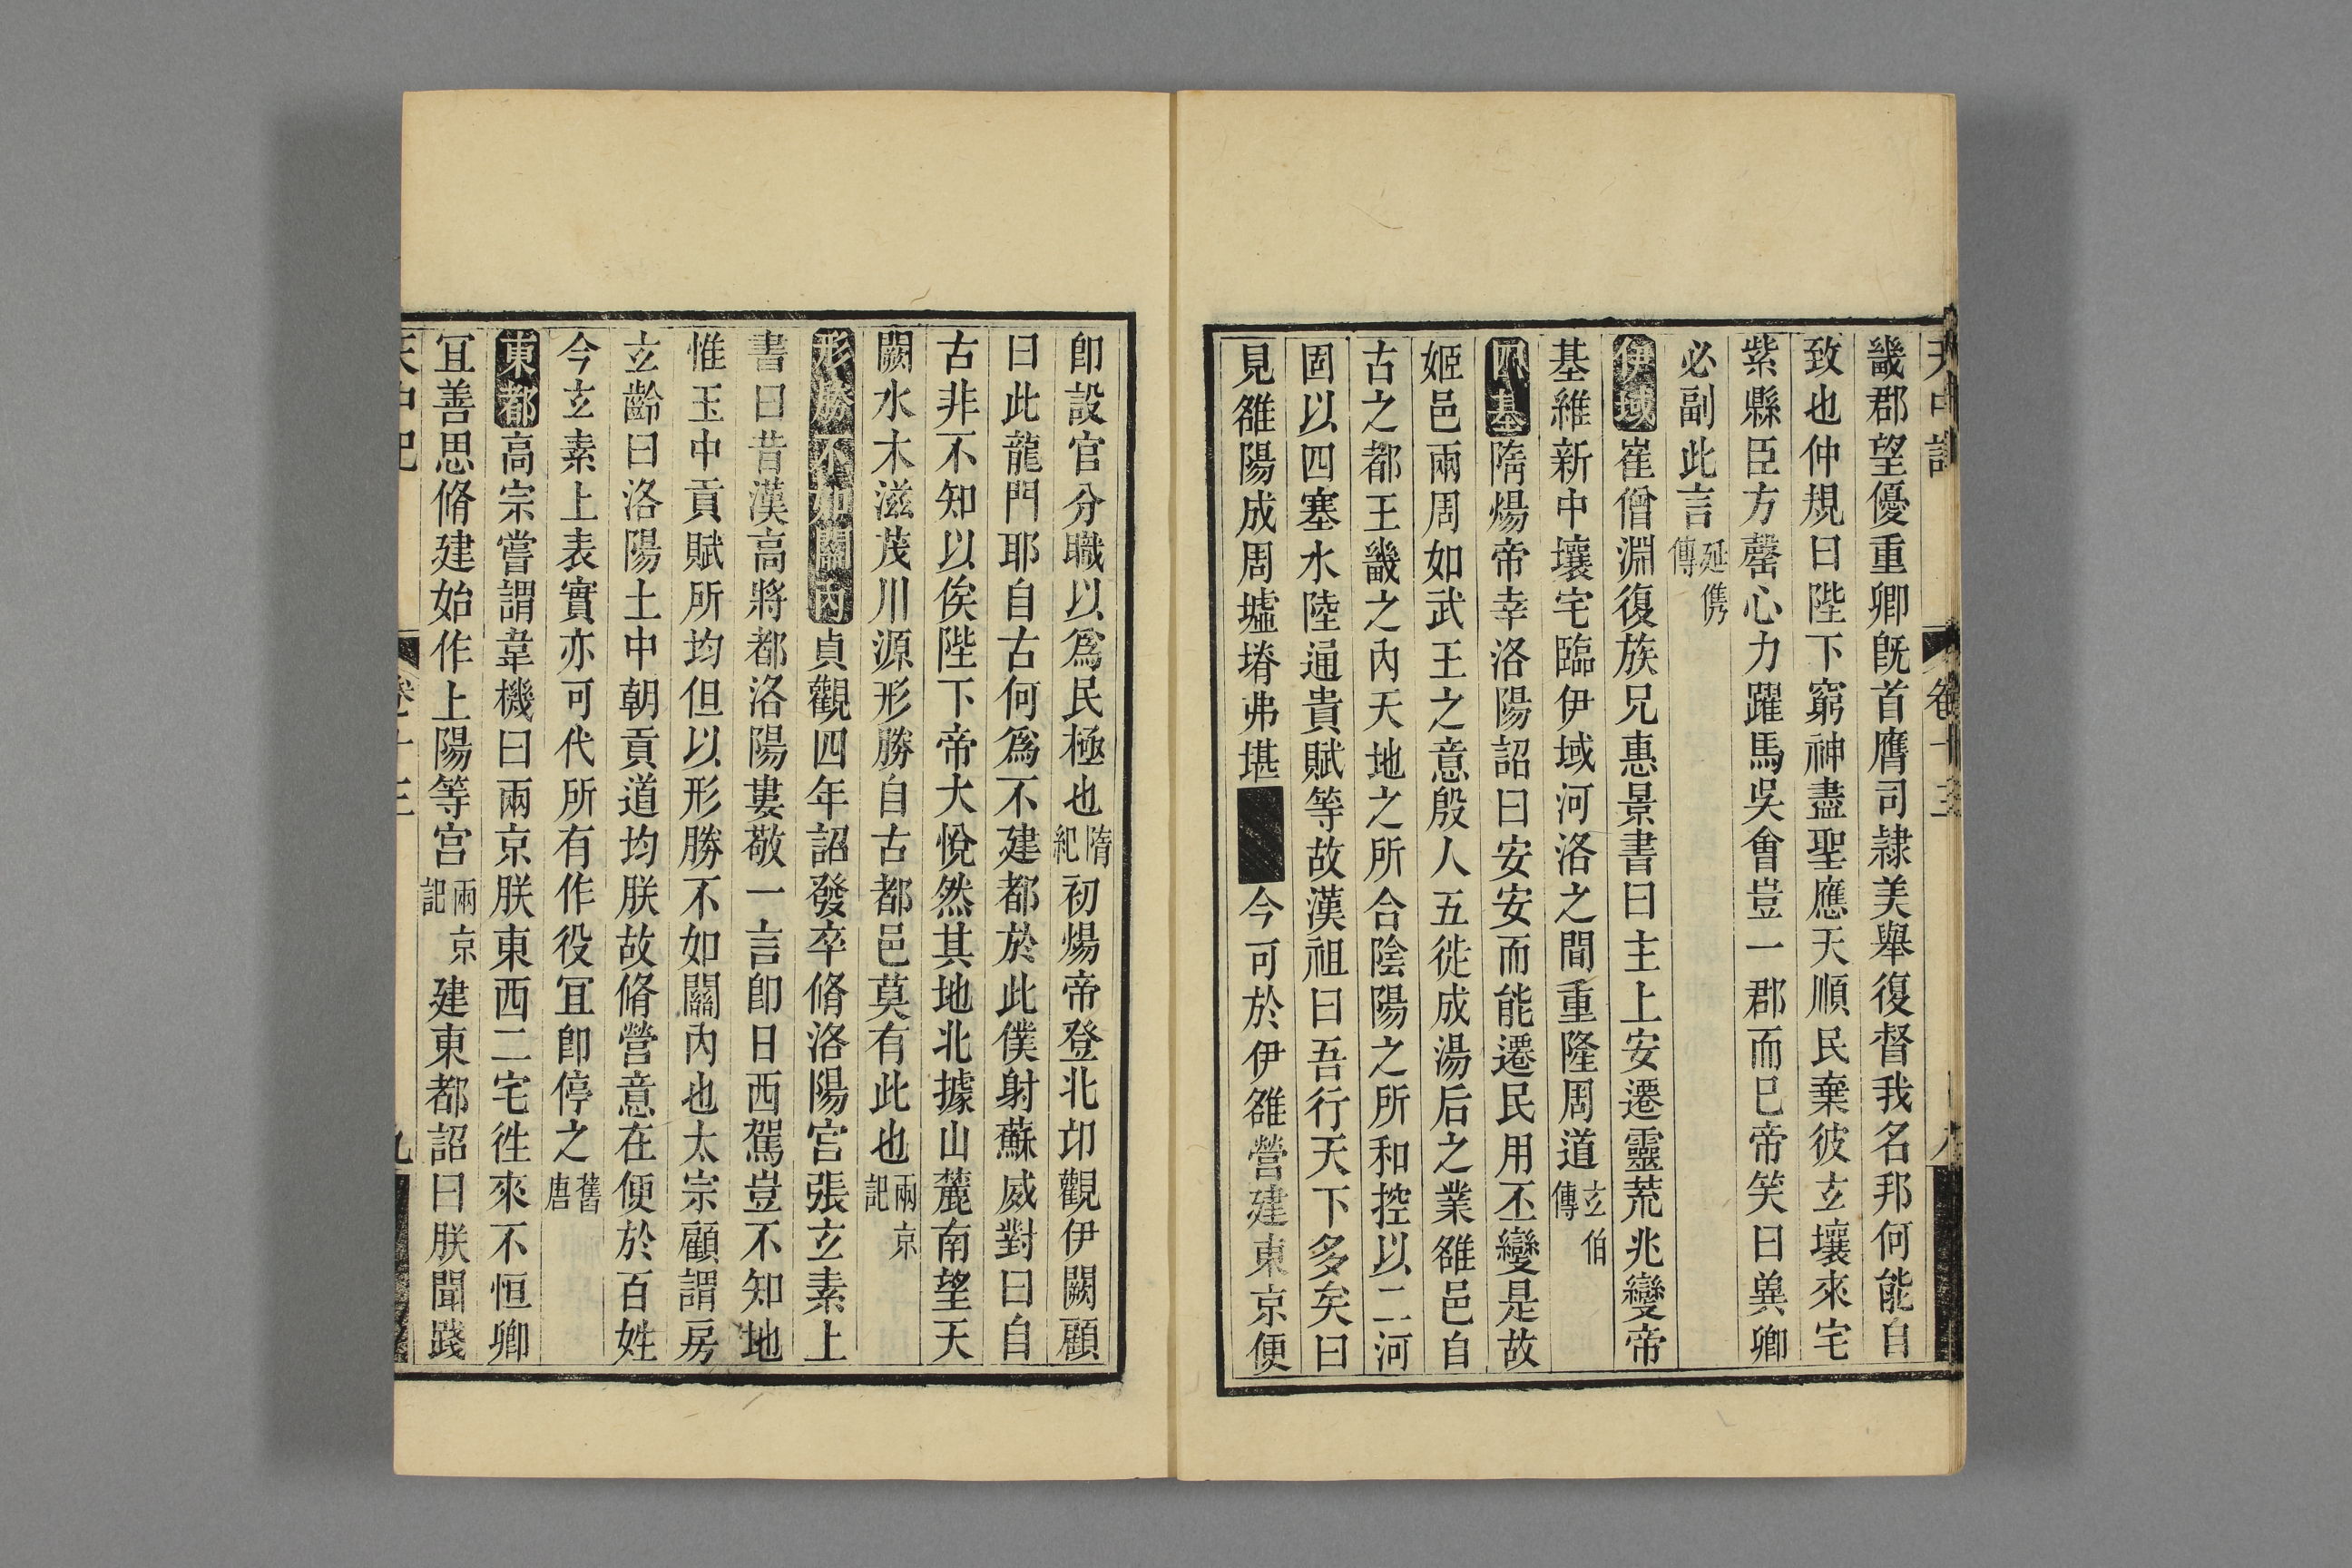 天中記 卷十三
畿郡望優重卿旣首膺司隸美舉復督我名邦何能自
致也仲規曰陛下窮神盡聖應天順民棄彼玄壤來宅
紫縣臣方罄心力躍馬吳會豈一郡而巳帝笑曰兾卿
必副此言延儁傳
伊域崔僧淵復族兄惠景書曰主上安遷靈荒兆變帝
基維新中壤宅臨伊域河洛之間重隆周道玄伯傳
四基隋煬帝幸洛陽詔曰安安而能遷民用丕變是故
姬邑兩周如武王之意殷人五徙成湯后之業雒邑自
古之都王畿之內天地之所合陰陽之所和控以二河
固以四塞水陸通貴賦等故漢祖曰吾行天下多矣曰
見雒陽成周墟塉弗堪今可於伊雒營建東京便
卽設官分職以爲民極也隋紀初煬帝登北邙觀伊闕顧
曰此龍門耶自古何爲不建都於此僕射蘇威對曰自
古非不知以俟陛下帝大悅然其地北據山麓南望天
闕水木滋茂川源形勝自古都邑莫有此也兩京記
形勝不如關內貞觀四年詔發卒脩洛陽宮張玄素上
書曰昔漢高將都洛陽婁敬一言卽日西駕豈不知地
惟玉中貢賦所均但以形勝不如關內也太宗顧謂房
玄齡曰洛陽土中朝貢道均朕故脩營意在便於百姓
今玄素上表實亦可代所有作役冝卽停之舊唐
東都高宗嘗謂韋機曰兩京朕東西二宅徃來不恒卿
冝善思脩建始作上陽等宮兩京記建東都詔曰朕聞踐
天中記 卷十三 九